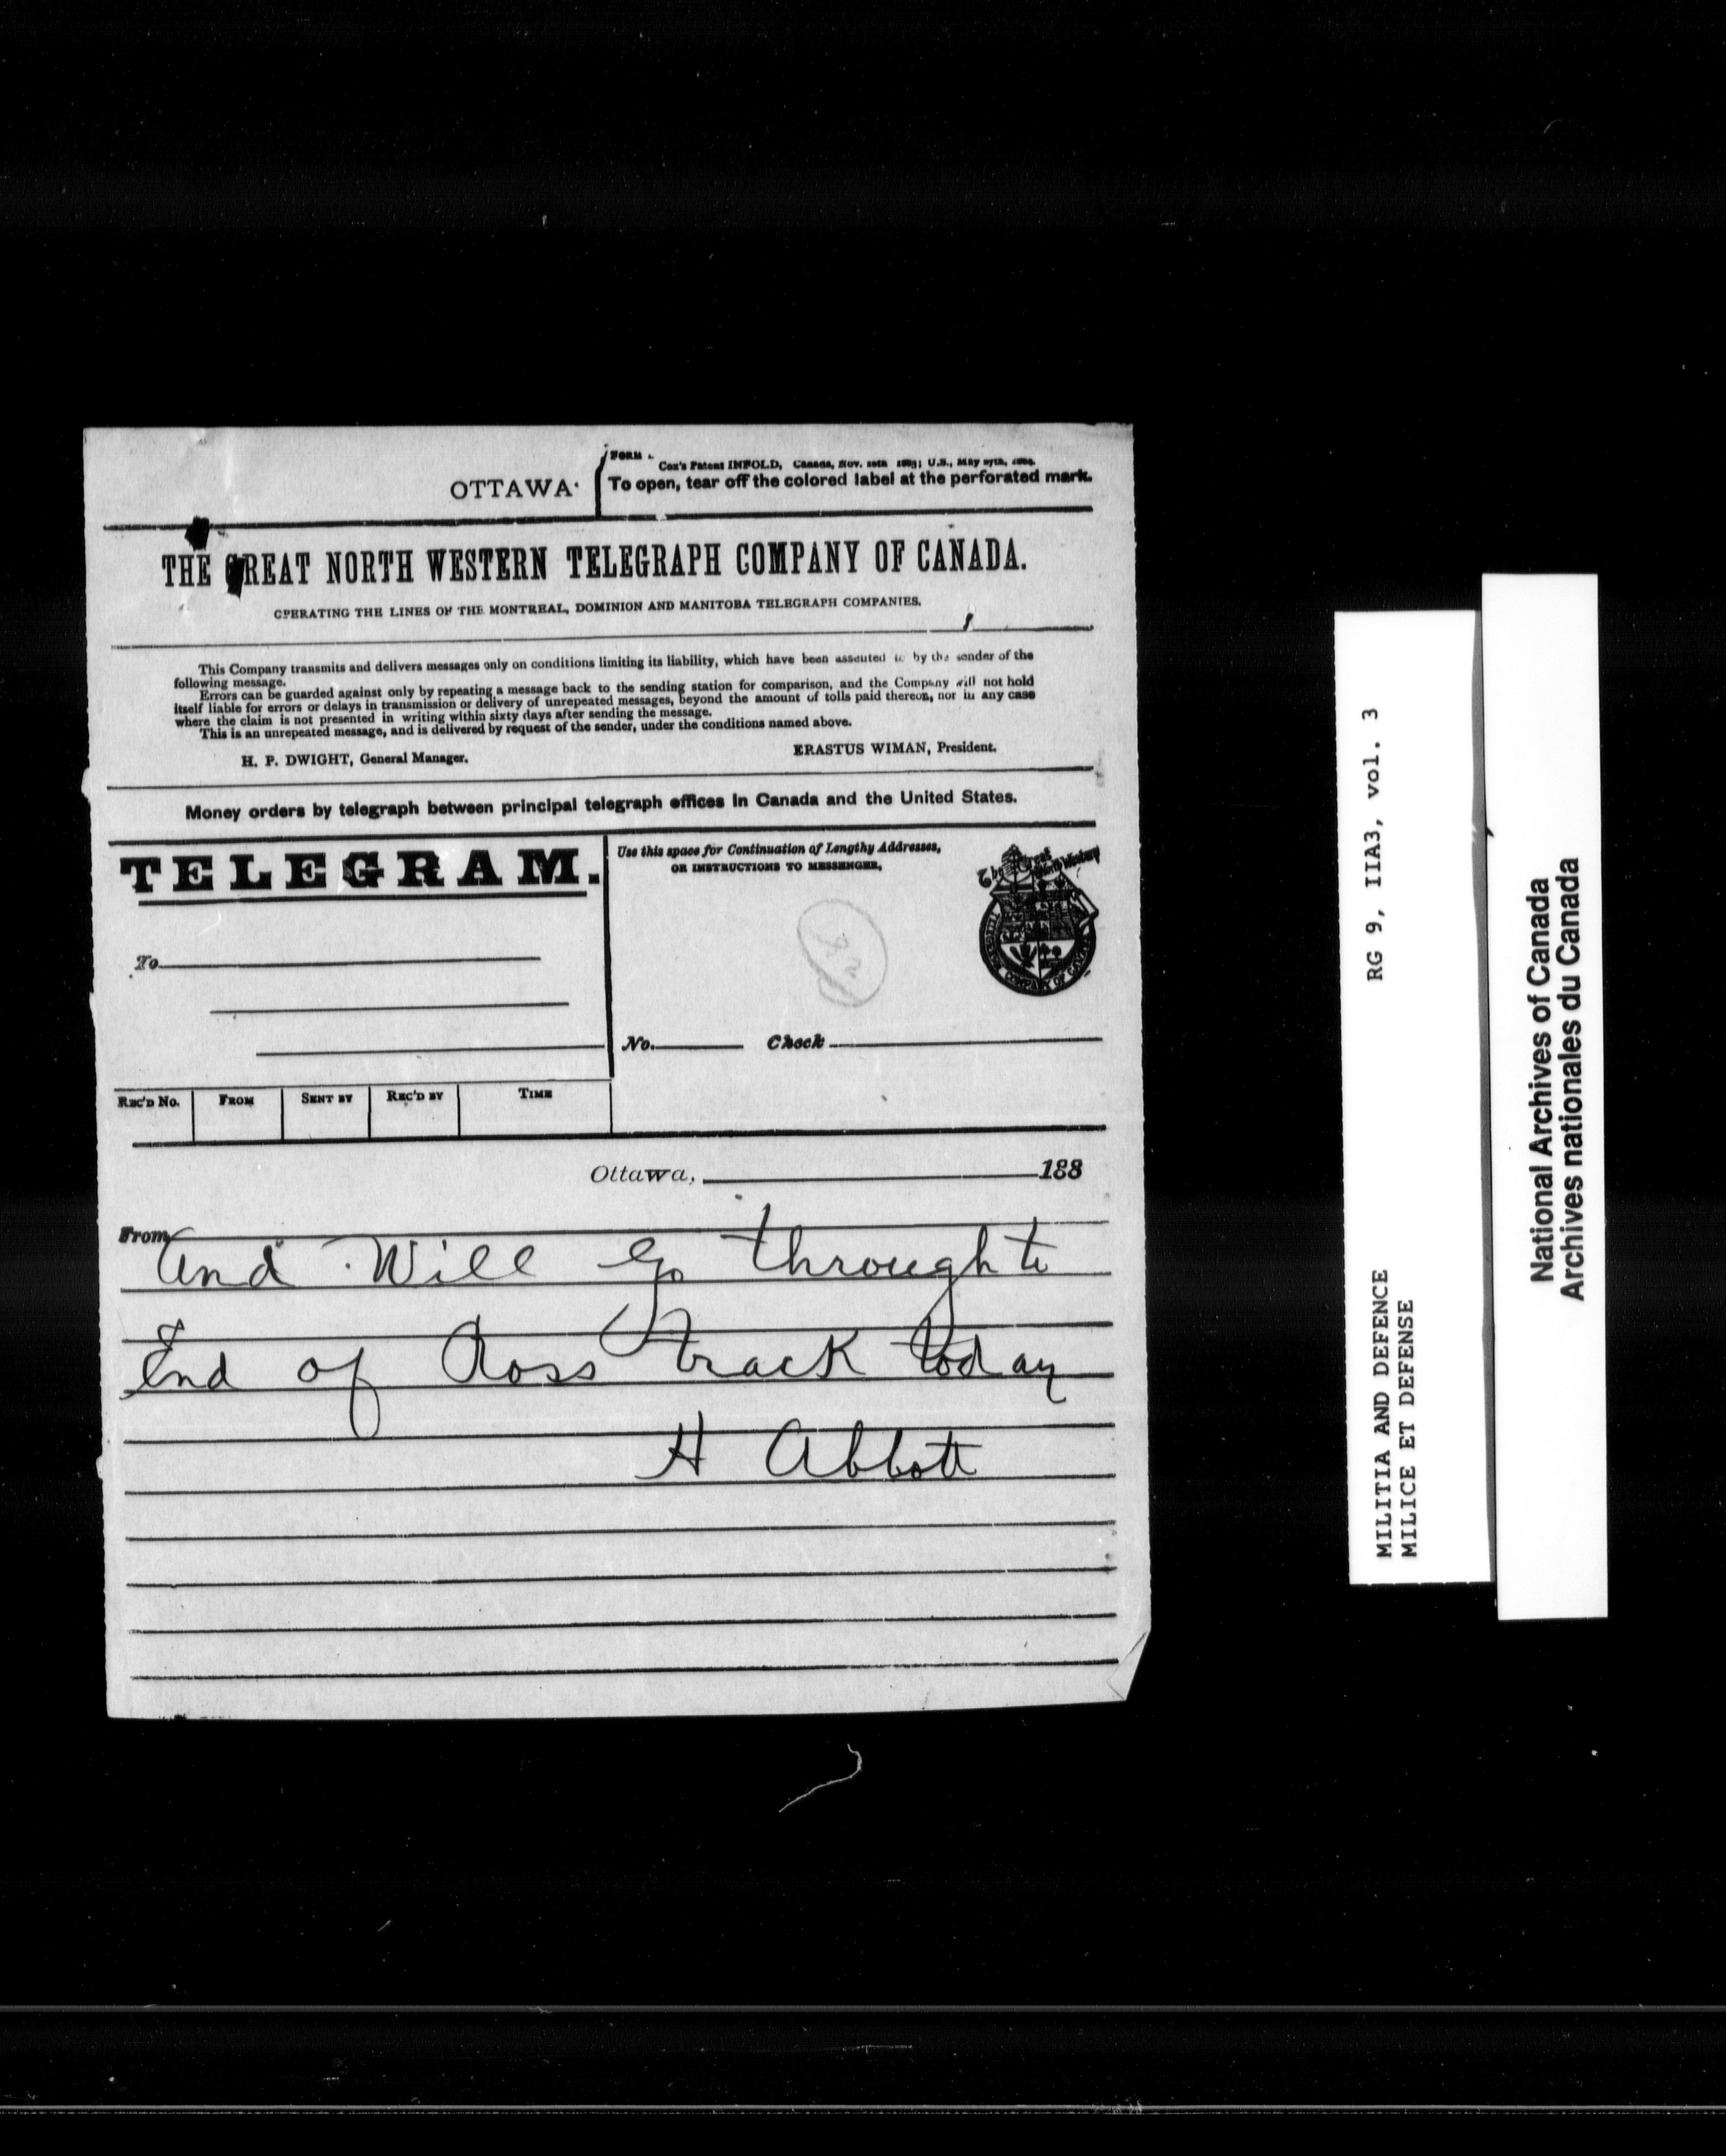 FORM
Cox's Patent INFOLD, Canada, Nov. 1883; U.S., May
OTTAWA
To open, tear off the colored label at the perforated mark.
THE GREAT NORTH WESTERN TELEGRAPH COMPANY OF CANADA.
OPERATING THE LINES OF THE MONTREAL, DOMINION AND MANITOBA TELEGRAPH COMPANIES.
This Company transmits and delivers messages only on conditions limiting its liability, which have been assented to by the sender of the
following message.
Errors can be guarded against only by repeating a message back to the sending station for comparison, and the Company will not hold
itself liable for errors or delays in transmission or delivery of unrepeated messages, beyond the amount of tolls paid thereon, nor in any case
where the claim is not presented in writing within sixty days after sending the message.
This is an unrepeated message, and is delivered by request of the sender, under the conditions named above.
H. P. DWIGHT, General Manager.
ERASTUS WIMAN, President.
Money orders by telegraph between principal telegraph offices in Canada and the United States.
TELEGRAM.
Use this space for Continuation of Lengthy Addresses,
OR INSTRUCTIONS TO MESSENGER.
The Great North Western
TELEGRAPH COMPANY OF
To
No. Check
REC'D No. FROM SENT BY REC'D BY TIME
Ottawa, 188
From
And Will Go through to
End of Ross track today
H Abbott
MILITIA AND DEFENCE RG 9, IIA3, vol. 3
MILICE ET DEFENSE
National Archives of Canada
Archives nationales du Canada